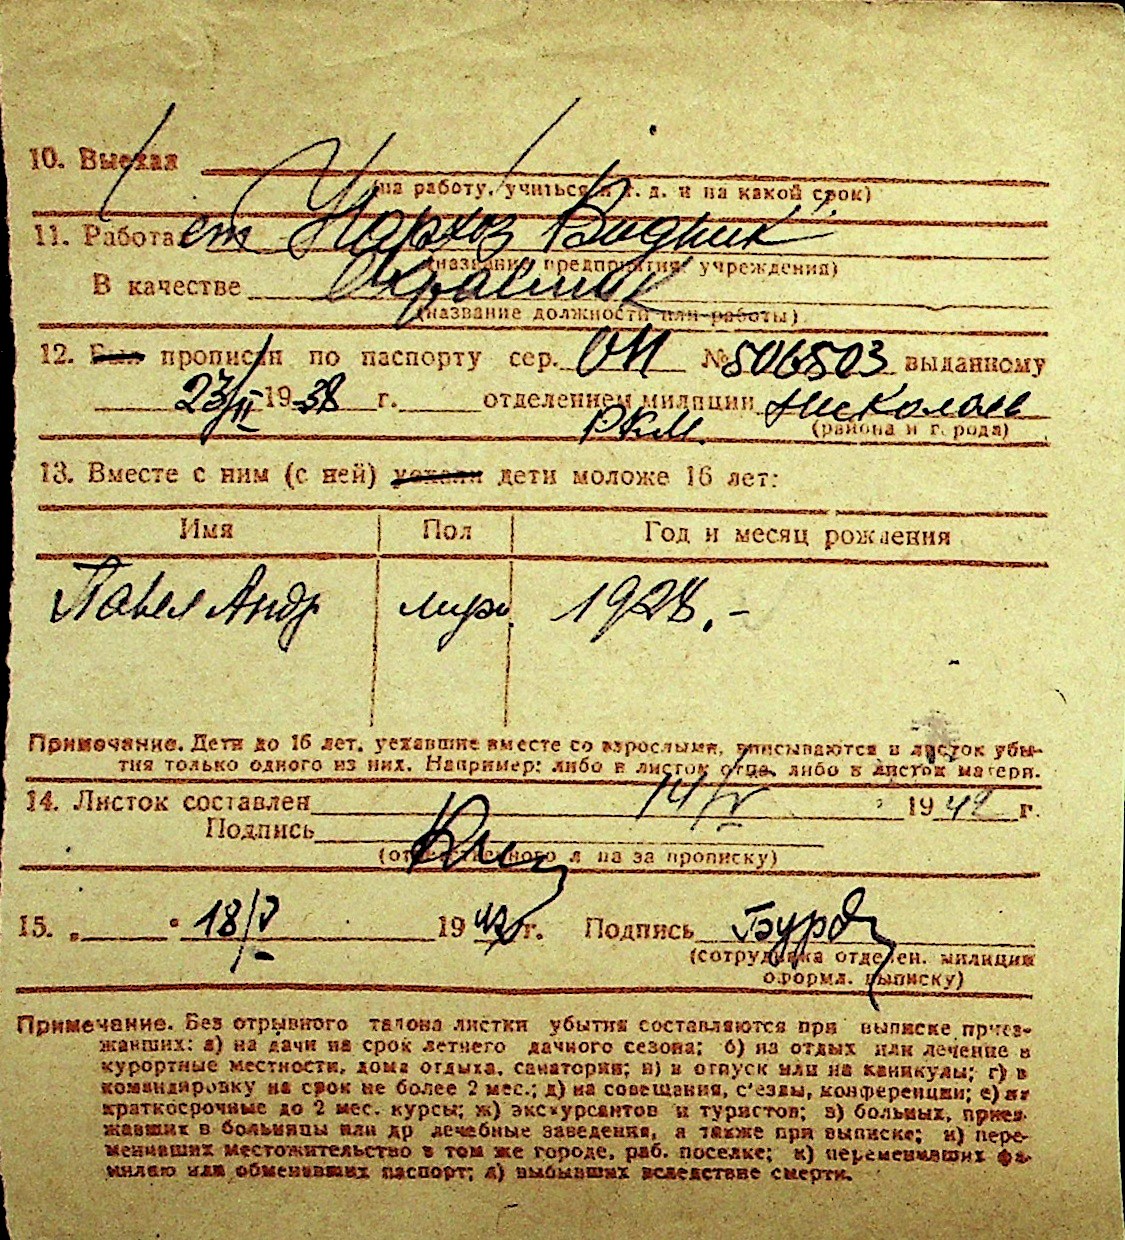 10. Выехал
(на работу, учиться и т. д. и на какой срок)
11. Работа ст Нархоз Водник
(название предприятия, учреждения)
В качестве
(название должности или работы)
12. Был прописан по паспорту сер. ОП № 506503 выданному
23/II 1938 г. отделением милиции Николаев
РКМ. (района и города)
13. Вместе с ним (с ней) уехали дети моложе 16 лет:
Имя Пол Год и месяц рождения
Павел Андр муж. 1928.-
Примечание. Дети до 16 лет, уехавшие вместе со взрослыми, вписываются в листок убы-
тия только одного из них. Например: либо в листок отца, либо в листок матери.
14. Листок составлен 14/V 1942 г.
Подпись
(ответственного лица за прописку)
15. „ “ 18/V 1942 г. Подпись
(сотрудника отделен. милиции
оформл. выписку)
Примечание. Без отрывного талона листки убытия составляются при выписке приез-
жавших: а) на дачи на срок летнего дачного сезона; б) на отдых или лечение в
курортные местности, дома отдыха, санатории; в) в отпуск или на каникулы; г) в
командировку на срок не более 2 мес.; д) на совещания, с'езды, конференции; е) на
краткосрочные до 2 мес. курсы; ж) экскурсантов и туристов; з) больных, приез-
жавших в больницы или др лечебные заведения, а также при выписке; и) пере-
менивших местожительство в том же городе, раб. поселке; к) переменивших фа-
милию или обменявших паспорт; л) выбывших вследствие смерти.